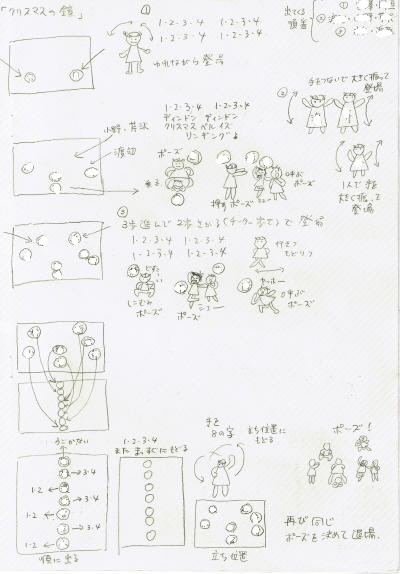 「クリスマスの鐘」
①
1・2・3・4　1・2・3・4
1・2・3・4　1・2・3・4
ゆれながら登場
出てくる
順番
①
②
③
②
手をつないで大きく振って
登場
1人で手を
大きく振って
登場
1・2・3・4　1・2・3・4
ディンドン　ディンドン
クリスマス ベル イズ
リンギング♪
小野・芹沢
渡辺
ポーズ
乗る
押す ポーズ
ポーズ
③
3歩進んで2歩さがる(チーター歩き)で登場
1・2・3・4　1・2・3・4
1・2・3・4　1・2・3・4
行きつ
もどりつ
ポーズ
ポーズ
ヤッホー
呼ぶ
ポーズ
うごかない
1・2
3・4
1・2
3・4
1・2
3・4
1・2
順に出る
1・2・3・4
また まっすぐにもどる
手を
8の字
立ち位置に
もどる
立ち位置
ポーズ!
再び同じ
ポーズを決めて退場。